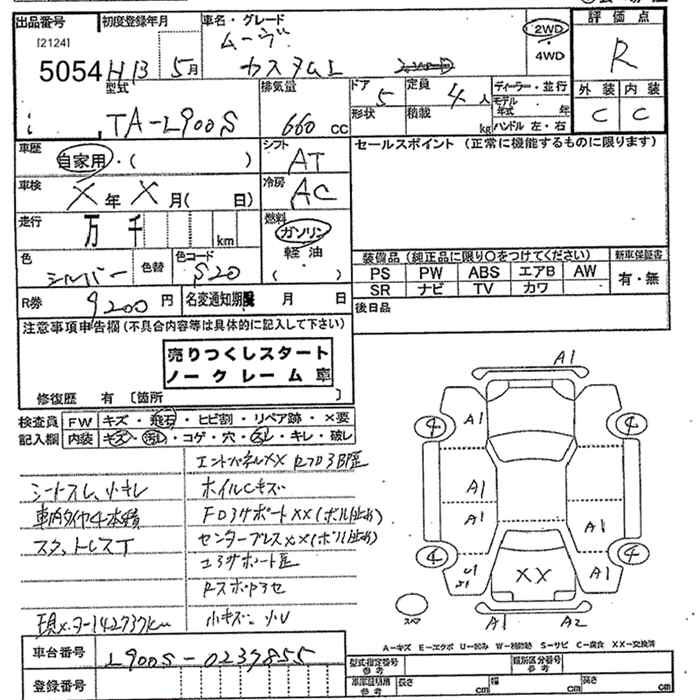 出品番号 初度登録年月 車名・グレード 評価点
[2124] ムーヴ 2WD
5054 H13 5月 カスタムL 4WD R
型式 排気量 ドア 定員 ディーラー・並行 外装 内装
TA-L900S 660 CC 5 4人 モデル年式 年 C C
形状 積載 kg ハンドル 左・右
車歴 自家用・( ) シフト AT セールスポイント (正常に機能するものに限ります)
車検 X年X月( 日) 冷房 AC
走行 万 千 km 燃料 ガソリン
色 シルバー 色替 色コード S20 軽油 ( )
装備品 (純正品に限り○をつけてください) 新車保証書
PS PW ABS エアB AW 有・無
SR ナビ TV カワ
R券 9200円 名変通知期限 月 日 後日品
注意事項申告欄 (不具合内容等は具体的に記入して下さい)
売りつくしスタート
ノークレーム車
修復歴 有 [箇所 ]
検査員 FW キズ・飛石・ヒビ割・リペア跡・×要
記入欄 内装 キズ・汚レ・コゲ・穴・スレ・キレ・破レ
シートスレ、小キレ
ホイルCキズ
車内タイヤ4本積
現メーター142737km
A1
4 A1 4
A1
A1 A1
4 4
U1 XX A1
スペア A1 A2
A-キズ E-エクボ U-凹み W-補修跡 S-サビ C-腐食 XX-交換済
車台番号 L900S-0237855
型式指定番号 参考 類別区分番号 参考
登録番号 車庫証明用 参考 長さ cm 幅 cm 高さ cm